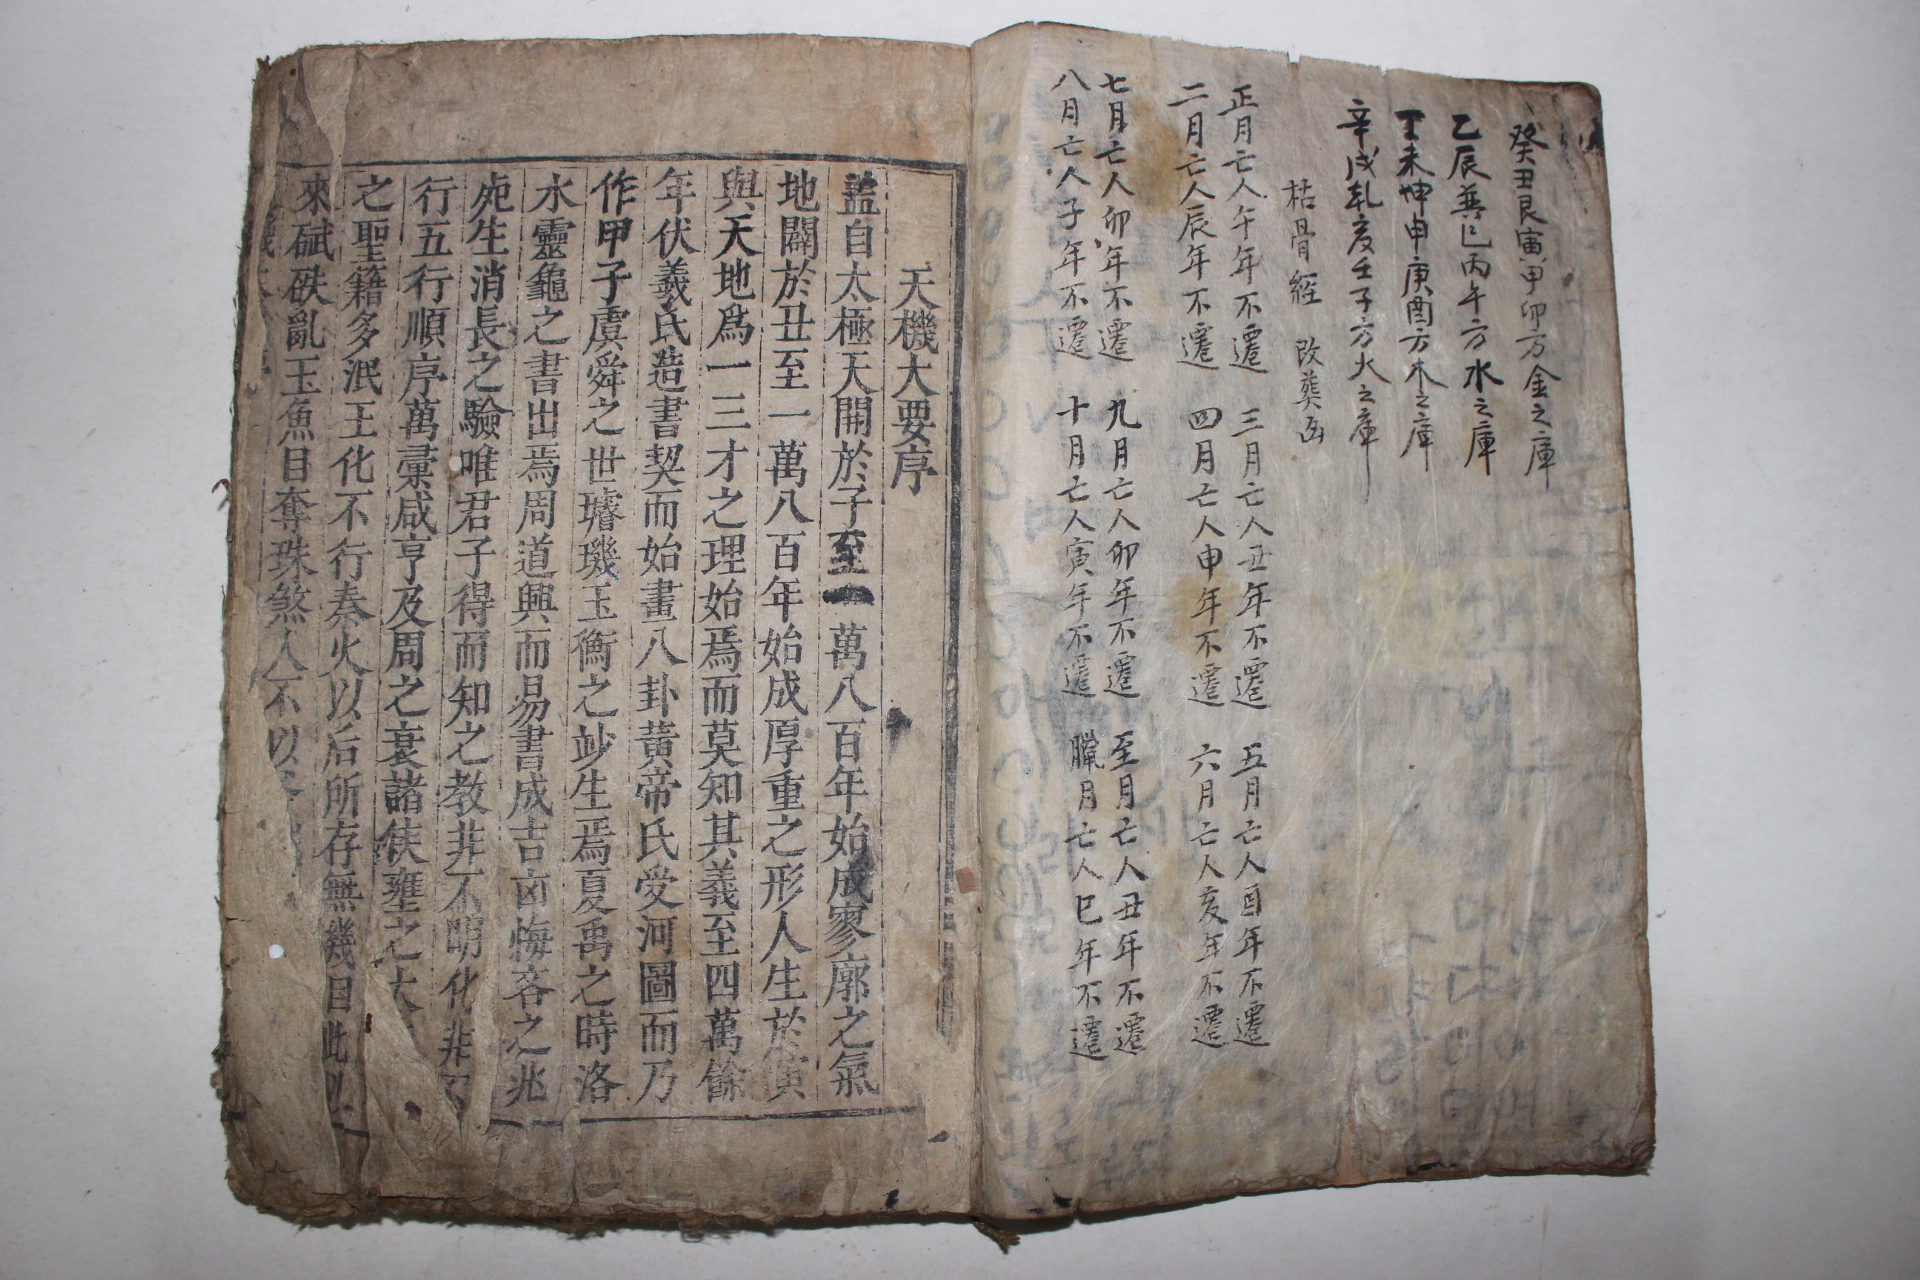 癸丑艮寅甲卯方金之庫
乙辰巽巳丙午方水之庫
丁未坤申庚酉方木之庫
辛戌乾亥壬子方火之庫
枯骨經 改葬凶
正月亡人午年不遷 三月亡人丑年不遷 五月亡人酉年不遷
二月亡人辰年不遷 四月亡人申年不遷 六月亡人亥年不遷
七月亡人卯年不遷 九月亡人卯年不遷 至月亡人丑年不遷
八月亡人子年不遷 十月亡人寅年不遷 臘月亡人巳年不遷
天機大要序
盖自太極天開於子至一萬八百年始成寥廓之氣
地闢於丑至一萬八百年始成厚重之形人生於寅
與天地爲一三才之理始焉而莫知其義至四萬餘
年伏羲氏造書契而始畫八卦黃帝氏受河圖而乃
作甲子虞舜之世璿璣玉衡之妙生焉夏禹之時洛
水靈龜之書出焉周道興而易書成吉凶悔吝之兆
死生消長之驗唯君子得而知之敎非不明化非不
行五行順序萬彙咸亨及周之衰諸侯壅之大
之聖籍多泯王化不行秦火以后所存無幾自此以
來碔砆亂玉魚目奪珠煞人不以